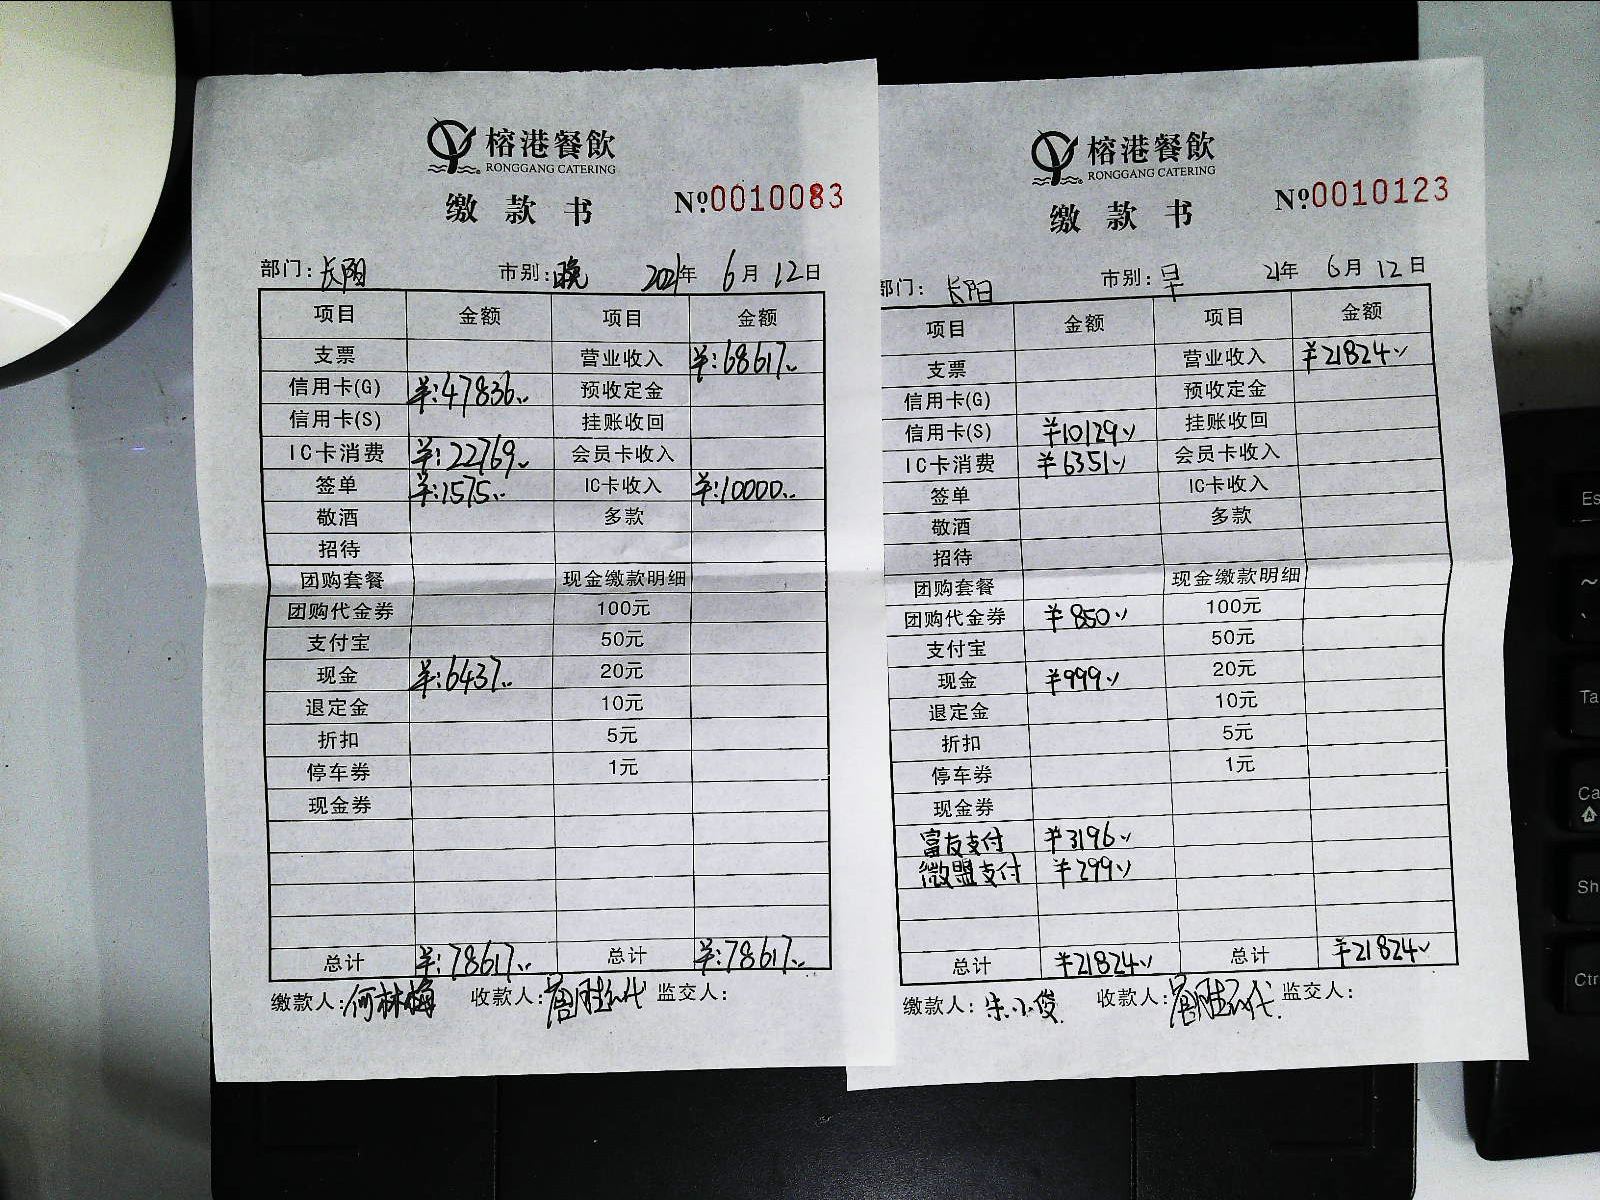 榕港餐飲
RONGGANG CATERING
缴款书 №0010083
部门：长阳 市别：晚 2021年 6月 12日
项目 金额 项目 金额
支票 营业收入 ¥:68617..
信用卡(G) ¥:47836.. 预收定金
信用卡(S) 挂账收回
IC卡消费 ¥:22769.. 会员卡收入
签单 ¥:1575.. IC卡收入 ¥:10000..
敬酒 多款
招待
团购套餐 现金缴款明细
团购代金券 100元
支付宝 50元
现金 ¥:6437.. 20元
退定金 10元
折扣 5元
停车券 1元
现金券
总计 ¥:78617.. 总计 ¥:78617..
缴款人：何林梅 收款人： 监交人：
榕港餐飲
RONGGANG CATERING
缴款书 №0010123
部门：长阳 市别：早 21年 6月 12日
项目 金额 项目 金额
支票 营业收入 ¥21824..
信用卡(G) 预收定金
信用卡(S) ¥10129.. 挂账收回
IC卡消费 ¥6351.. 会员卡收入
签单 IC卡收入
敬酒 多款
招待
团购套餐 现金缴款明细
团购代金券 ¥850.. 100元
支付宝 50元
现金 ¥999.. 20元
退定金 10元
折扣 5元
停车券 1元
现金券
富友支付 ¥3196..
微盟支付 ¥299..
总计 ¥21824.. 总计 ¥21824..
缴款人：朱小俊 收款人： 监交人：
Es
~
Ta
Ca
Sh
Ctr